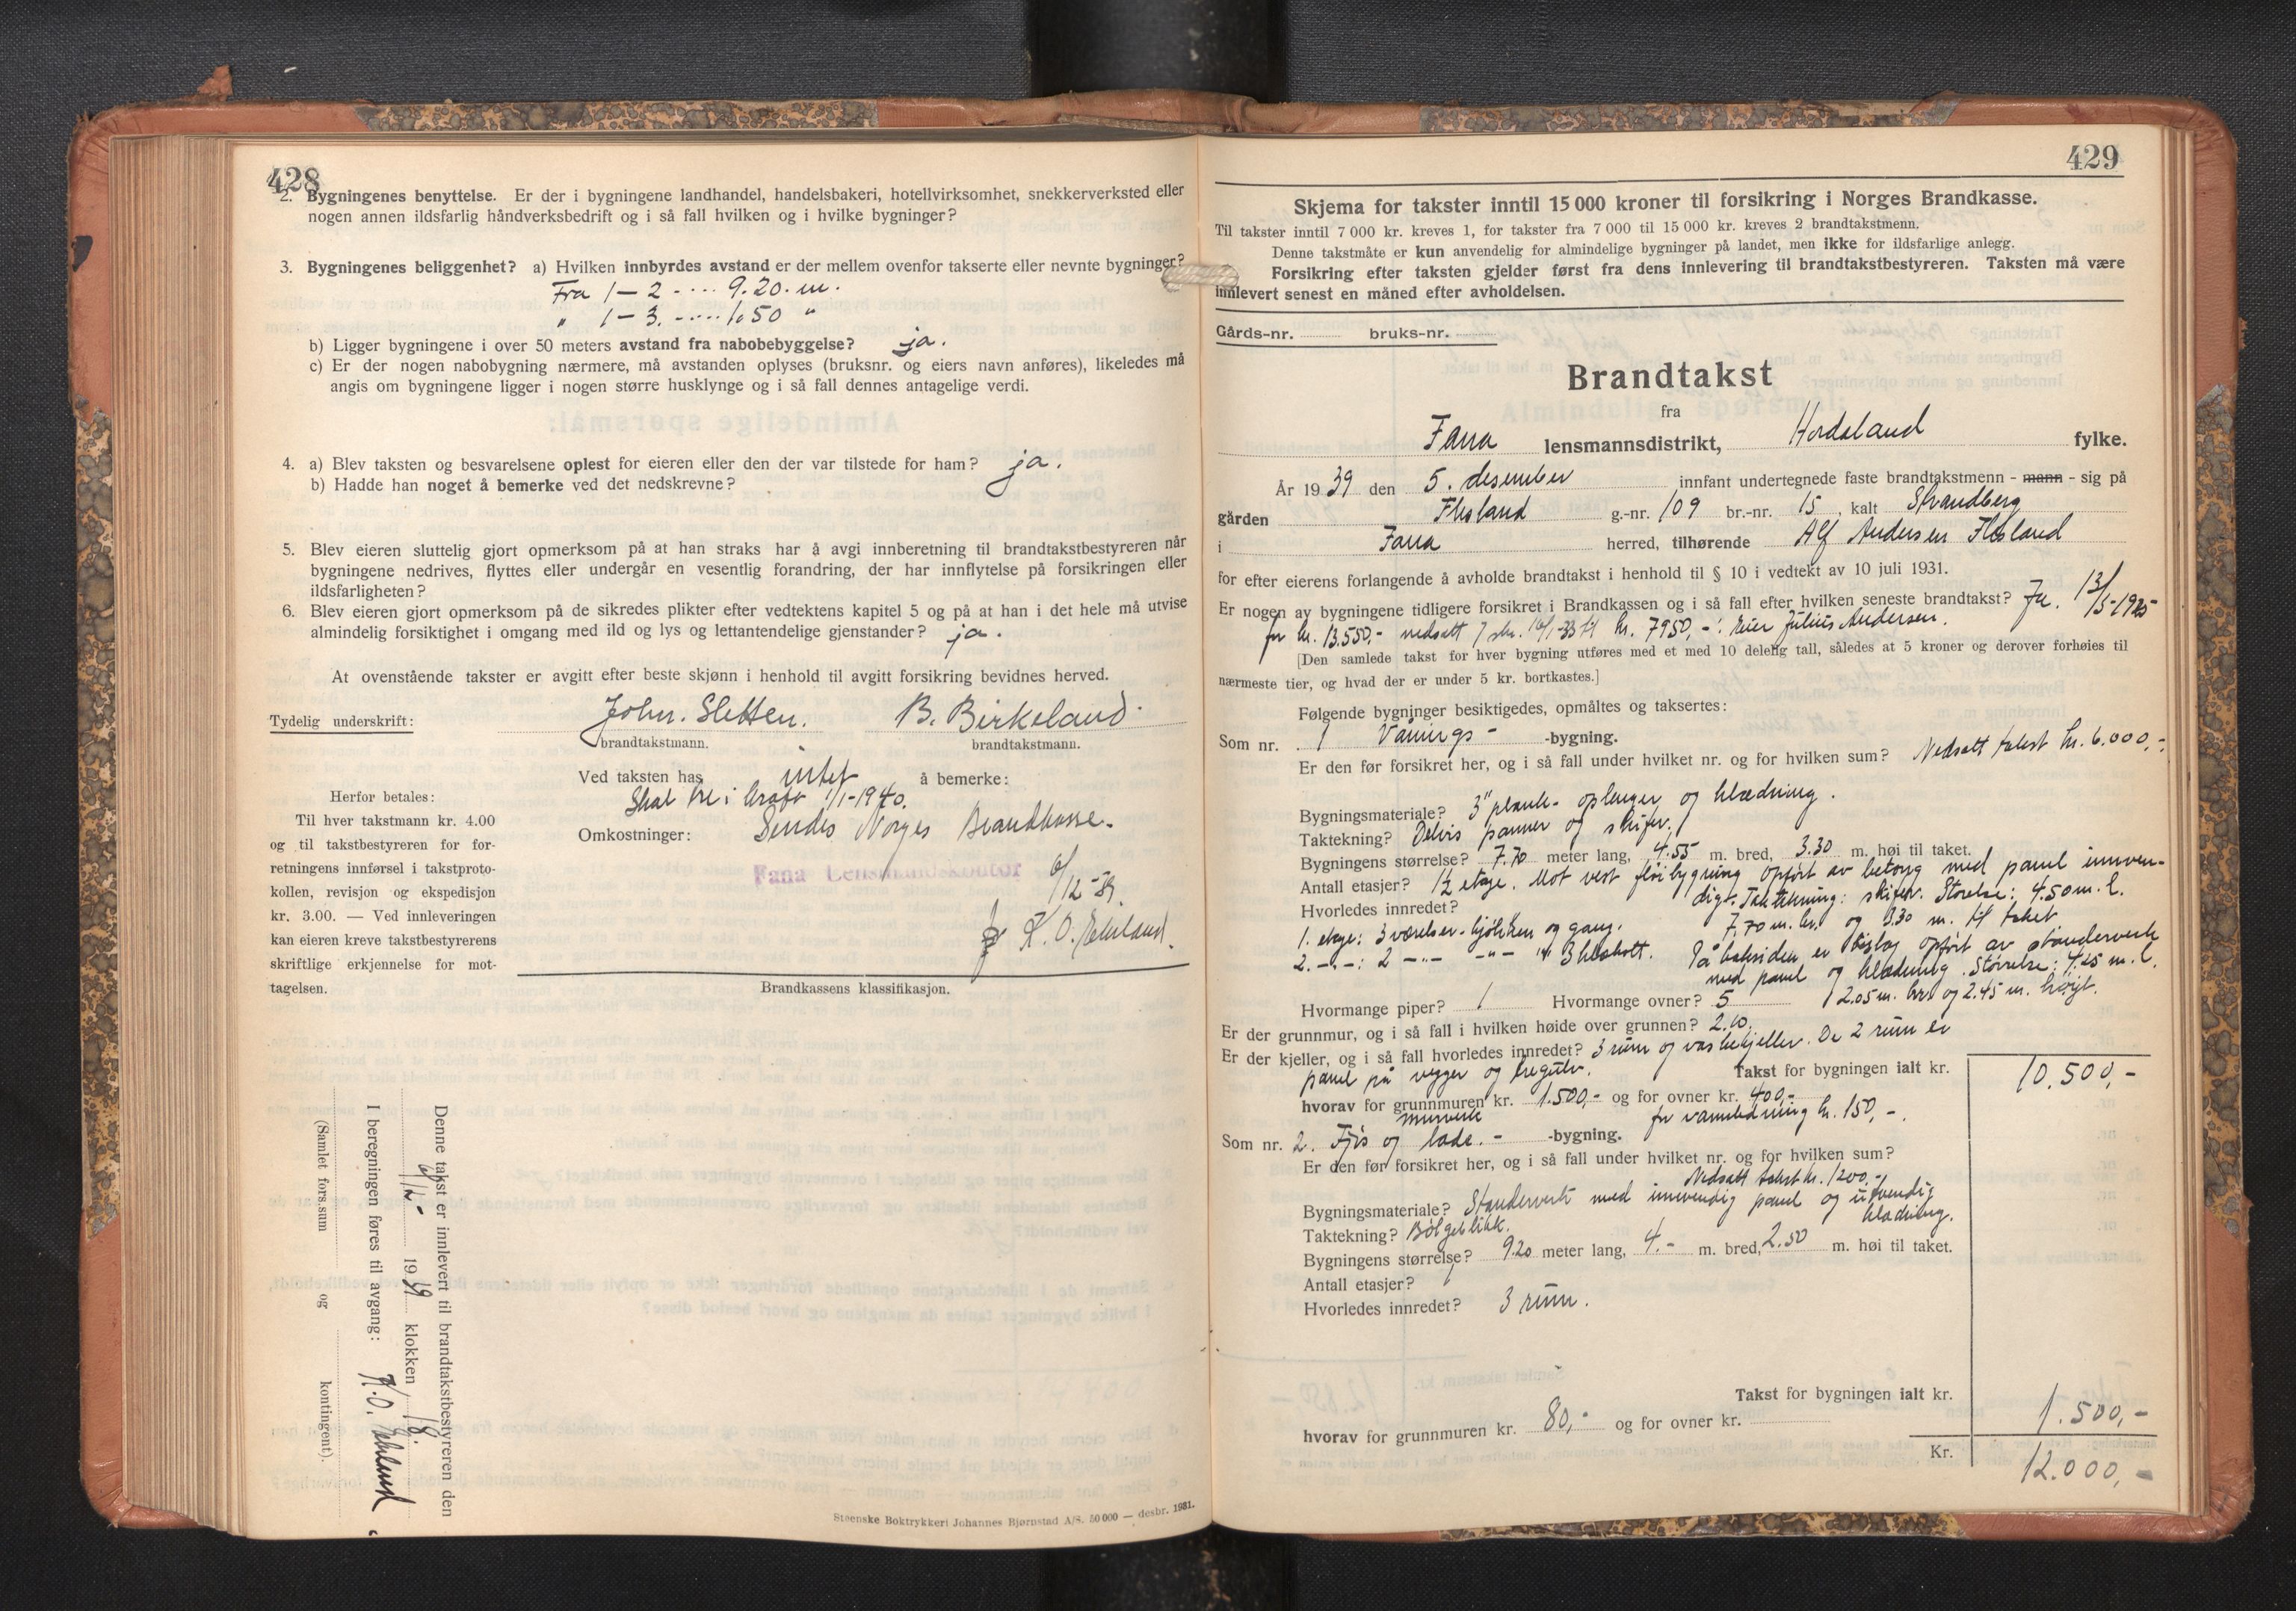 428
2. Bygningenes benyttelse. Er der i bygningene landhandel, handelsbakeri, hotellvirksomhet, snekkerverksted eller
nogen annen ildsfarlig håndverksbedrift og i så fall hvilken og i hvilke bygninger?
3. Bygningenes beliggenhet? a) Hvilken innbyrdes avstand er der mellem ovenfor takserte eller nevnte bygninger?
Fra 1-2 ---- 9.20. m.
" 1-3. ---- 1.50 "
b) Ligger bygningene i over 50 meters avstand fra nabobebyggelse? ja.
c) Er der nogen nabobygning nærmere, må avstanden oplyses (bruksnr. og eiers navn anføres), likeledes må
angis om bygningene ligger i nogen større husklynge og i så fall dennes antagelige verdi.
4. a) Blev taksten og besvarelsene oplest for eieren eller den der var tilstede for ham? ja.
b) Hadde han noget å bemerke ved det nedskrevne?
5. Blev eieren sluttelig gjort opmerksom på at han straks har å avgi innberetning til brandtakstbestyreren når
bygningene nedrives, flyttes eller undergår en vesentlig forandring, der har innflytelse på forsikringen eller
ildsfarligheten?
6. Blev eieren gjort opmerksom på de sikredes plikter efter vedtektens kapitel 5 og på at han i det hele må utvise
almindelig forsiktighet i omgang med ild og lys og lettantendelige gjenstander? ja.
At ovenstående takster er avgitt efter beste skjønn i henhold til avgitt forsikring bevidnes herved.
Tydelig underskrift: John. Sletten. B. Birkeland
brandtakstmann. brandtakstmann.
Ved taksten has intet å bemerke:
Skal tre i kraft 1/1-1940.
Omkostninger: Sendes Norges Brandkasse.
Fana Lensmannskontor 6/12-39.
K. O. Ekeland.
Herfor betales:
Til hver takstmann kr. 4.00
og til takstbestyreren for for-
retningens innførsel i takstproto-
kollen, revisjon og ekspedisjon
kr. 3.00. — Ved innleveringen
kan eieren kreve takstbestyrerens
skriftlige erkjennelse for mot-
tagelsen.
Brandkassens klassifikasjon.
Denne takst er innlevert til brandtakstbestyreren den
6/12- 1939 klokken 18.
I beregningen føres til avgang: K. O. Ekeland
(Samlet fors.sum og kontingent).
Steenske Boktrykkeri Johannes Bjørnstad A/S. 50 000 — desbr. 1931.
429
Skjema for takster inntil 15 000 kroner til forsikring i Norges Brandkasse.
Til takster inntil 7 000 kr. kreves 1, for takster fra 7 000 til 15 000 kr. kreves 2 brandtakstmenn.
Denne takstmåte er kun anvendelig for almindelige bygninger på landet, men ikke for ildsfarlige anlegg.
Forsikring efter taksten gjelder først fra dens innlevering til brandtakstbestyreren. Taksten må være
innlevert senest en måned efter avholdelsen.
Gårds-nr. bruks-nr.
Brandtakst
fra
Fana lensmannsdistrikt, Hordaland fylke.
År 1939 den 5. desember innfant undertegnede faste brandtakstmenn - mann - sig på
gården Flesland g.-nr. 109 br.-nr. 15, kalt Strandberg
i Fana herred, tilhørende Alf Andersen Flesland
for efter eierens forlangende å avholde brandtakst i henhold til § 10 i vedtekt av 10 juli 1931.
Er nogen av bygningene tidligere forsikret i Brandkassen og i så fall efter hvilken seneste brandtakst? Ja. 13/5-1925
for kr. 13.550,- nedsatt 16/1-33 til kr. 7950,-. Eier Julius Andersen.
[Den samlede takst for hver bygning utføres med et med 10 delelig tall, således at 5 kroner og derover forhøies til
nærmeste tier, og hvad der er under 5 kr. bortkastes.]
Følgende bygninger besiktigedes, opmåltes og taksertes:
Som nr. 1 Vånings- -bygning.
Er den før forsikret her, og i så fall under hvilket nr. og for hvilken sum? Nedsatt takst kr. 6.000,-
Bygningsmateriale? 3" plank- oplenger og klædning.
Taktekning? Delvis panner og skifer.
Bygningens størrelse? 7.70 meter lang, 4.55 m. bred, 3.30 m. høi til taket.
Antall etasjer? 1½ etage. Mot vest fløibygning opført av betong med panel innven-
dig. Taktekning: skifer. Størelse: 4.50 m. l.
Hvorledes innredet? 7.70 m. br. og 3.30 m. til taket
1. etage: 3 værelser - kjøkken og gang.
2. -"-: 2 -"- -"- " 3 kleskott. På baksiden er bislag opført av stenderverk
med panel og klædning. Størrelse: 4.25 m. l.
Hvormange piper? 1 Hvormange ovner? 5 2.05 m. br. og 2.45 m. høyt.
Er der grunnmur, og i så fall i hvilken høide over grunnen? 2.10.
Er der kjeller, og i så fall hvorledes innredet? 3 rum og vaskekjeller. De 2 rum er
panel på vegger og tregulv. Takst for bygningen ialt kr. 10.500,-
hvorav for grunnmuren kr. 1.500,- og for ovner kr. 400,-
murverk for vannledning kr. 150,-.
Som nr. 2. Fjøs og lade. - -bygning.
Er den før forsikret her, og i så fall under hvilket nr. og for hvilken sum?
Nedsatt takst kr. 1200.-
Bygningsmateriale? Stenderverk med innvendig panel og utvendig
klædning.
Taktekning? Bølgeblikk.
Bygningens størrelse? 9.20 meter lang, 4.- m. bred, 2.50 m. høi til taket.
Antall etasjer? 1
Hvorledes innredet? 3 rum.
Takst for bygningen ialt kr. 1.500,-
hvorav for grunnmuren kr. 80,- og for ovner kr.
Kr. 12.000,-